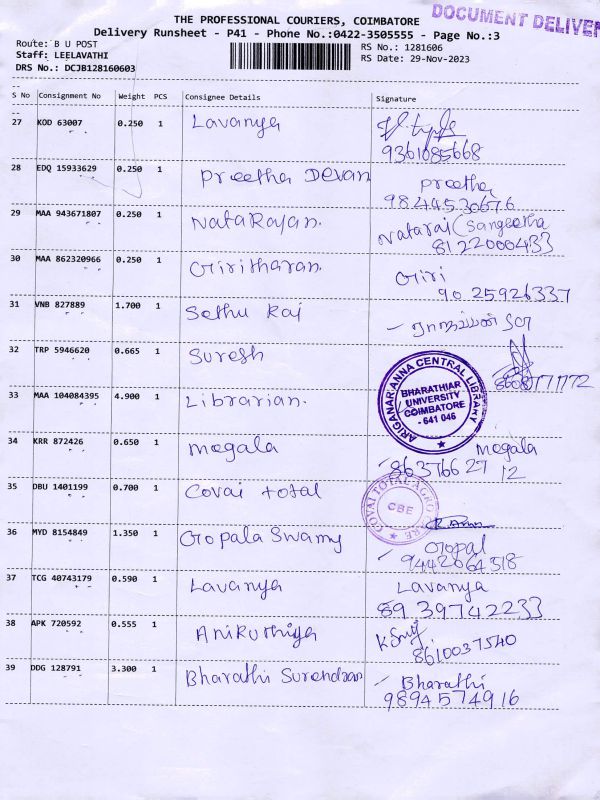 THE PROFESSIONAL COURIERS, COIMBATORE
DOCUMENT DELIVER
Delivery Runsheet - P41 - Phone No.:0422-3505555 - Page No.:3
Route: B U POST
Staff: LEELAVATHI
DRS No.: DCJB128160603
RS No.: 1281606
RS Date: 29-Nov-2023
S No Consignment No Weight PCS Consignee Details Signature
27 KOD 63007 0.250 1 Lavanya
9361085668
28 EDQ 15933629 0.250 1 Preetha Devan Preetha
9824453067 6
29 MAA 943671807 0.250 1 Natarajan. Nataraj (Sangeetha
8122000433
30 MAA 862320966 0.250 1 Giritharan. Giri
9025926337
31 VNB 827889 1.700 1 Sethu Raj
32 TRP 5946620 0.665 1 Suresh
33 MAA 104084395 4.900 1 Librarian.
ARIGNAR ANNA CENTRAL LIBRARY
BHARATHIAR
UNIVERSITY
COIMBATORE
- 641 046
34 KRR 872426 0.650 1 Mogala Mogala
8637662712
35 DBU 1401199 0.700 1 Covai total
COVAI TOTAL AGRO
CBE
36 MYD 8154849 1.350 1 Gopala Swamy Gopal
9442064318
37 TCG 40743179 0.590 1 Lavanya Lavanya
8939742233
38 APK 720592 0.555 1 Aniruthiya
8610037540
39 DDG 128791 3.300 1 Bharathi Surendran Bharathi
9894574916